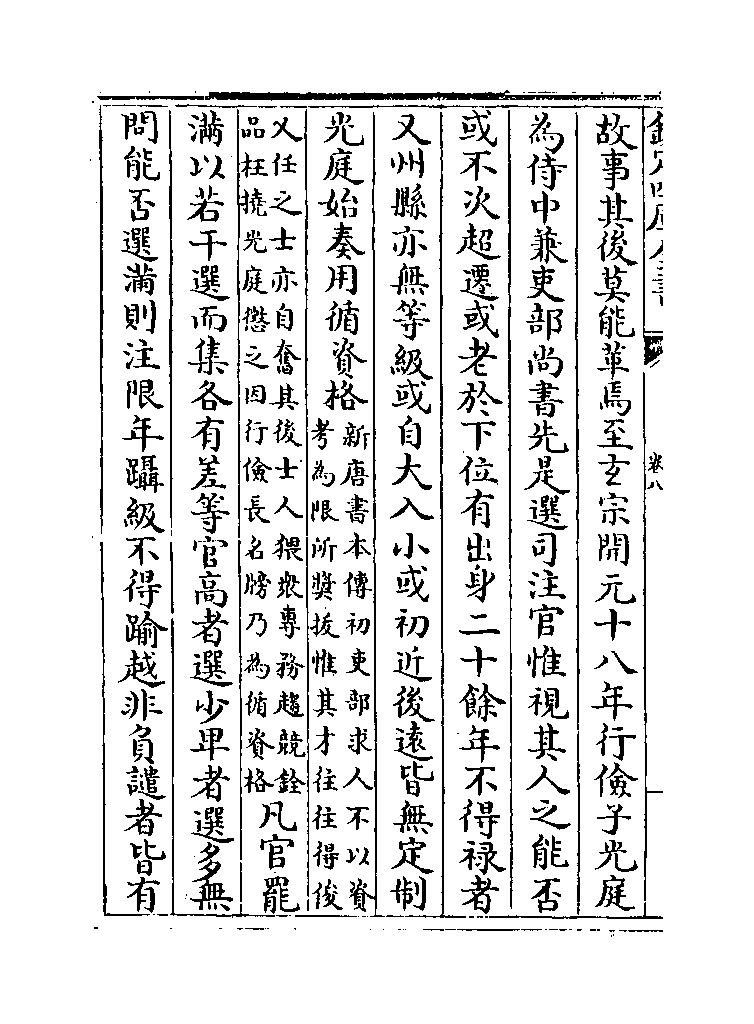 欽定四庫全書
卷八
故事其後莫能革焉至玄宗開元十八年行儉子光庭
為侍中兼吏部尚書先是選司注官惟視其人之能否
或不次超遷或老於下位有出身二十餘年不得禄者
又州縣亦無等級或自大入小或初近後遠皆無定制
光庭始奏用循資格新唐書本傳初吏部求人不以資
考為限所奬拔惟其才往往得俊
乂任之士亦自奮其後士人猥衆專務趨競銓
品枉撓光庭懲之因行儉長名牓乃為循資格凡官罷
滿以若干選而集各有差等官高者選少卑者選多無
問能否選滿則注限年躡級不得踰越非負譴者皆有